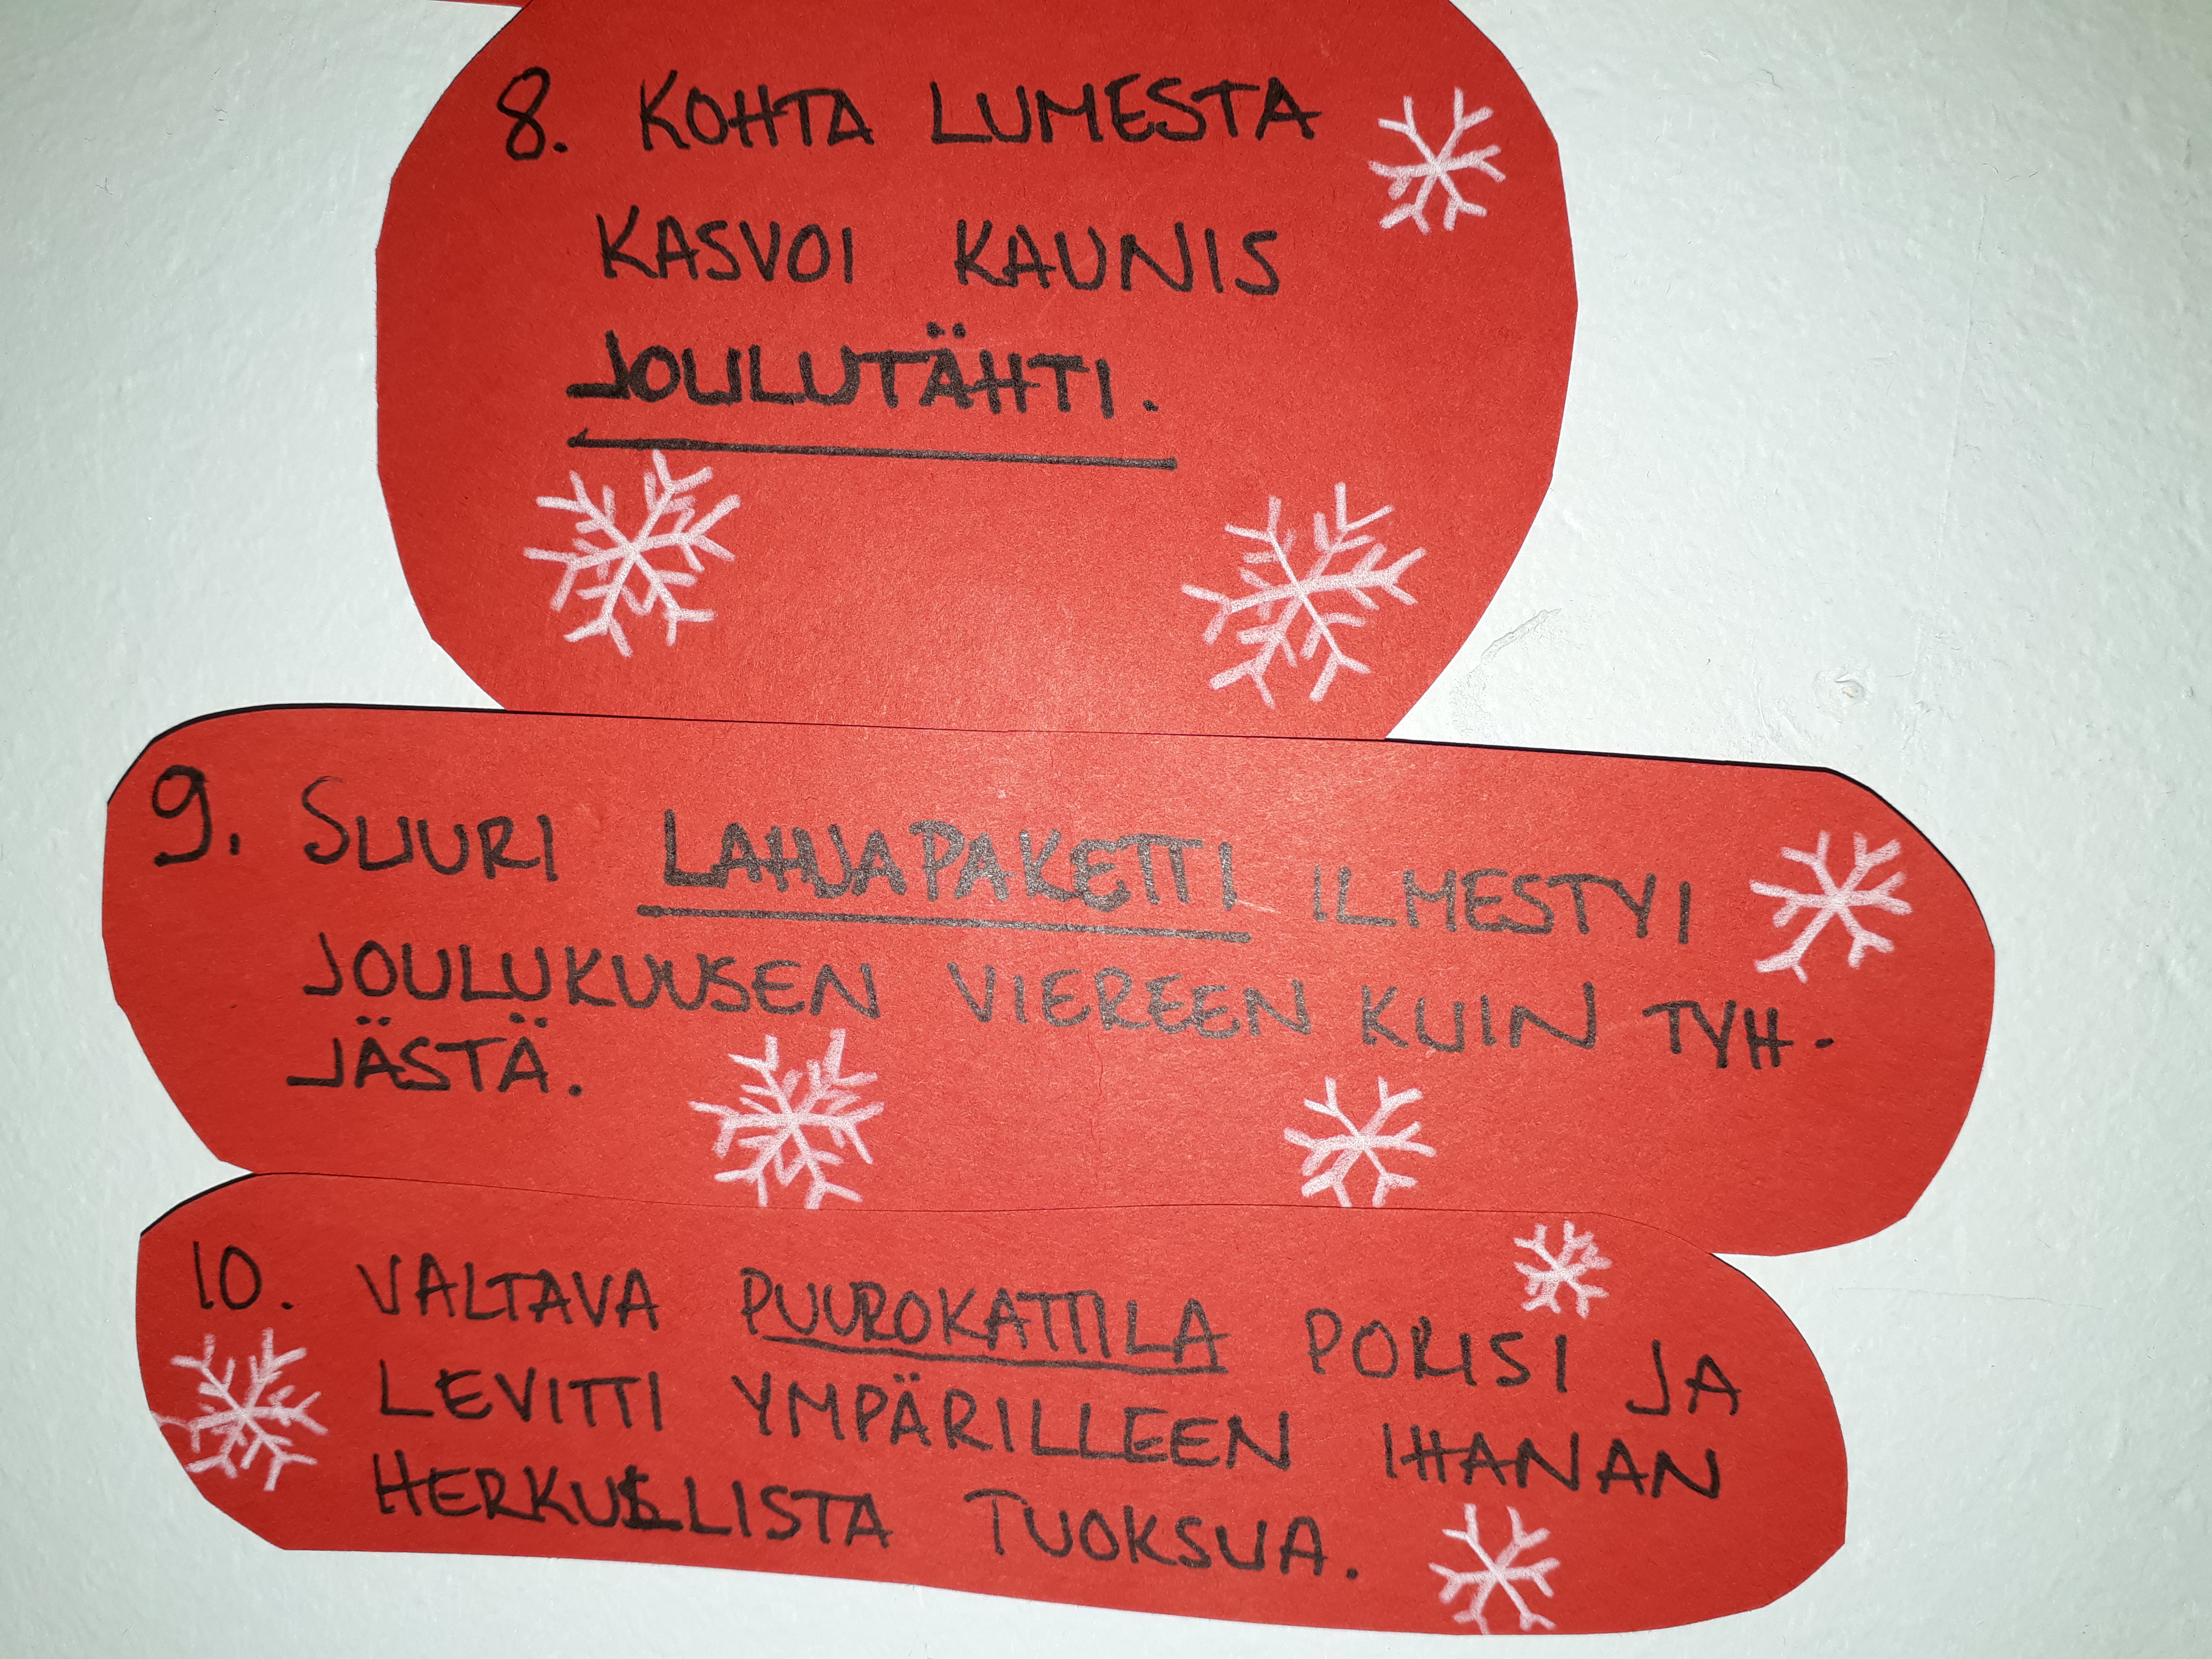 8. KOHTA LUMESTA
KASVOI KAUNIS
JOULUTÄHTI.
9. SUURI LAHJAPAKETTI ILMESTYI
JOULUKUUSEN VIEREEN KUIN TYH-
JÄSTÄ.
10. VALTAVA PUUROKATTILA PORISI JA
LEVITTI YMPÄRILLEEN IHANAN
HERKULLISTA TUOKSUA.